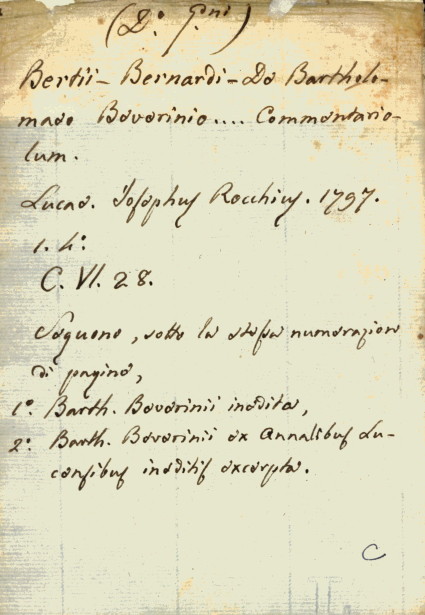 (2.° Gni)
Bertii - Bernardi - De Barthole-
maeo Beverinio.... Commentario-
lum.
Lucae. Josephus Rocchius. 1797.
1. 4.°
C. VI. 28.
Seguono, sotto la stessa numerazione
di pagine,
1.° Barth. Beverinii inedita,
2.° Barth. Beverinii ex Annalibus Lu-
censibus ineditis excerpta.
C